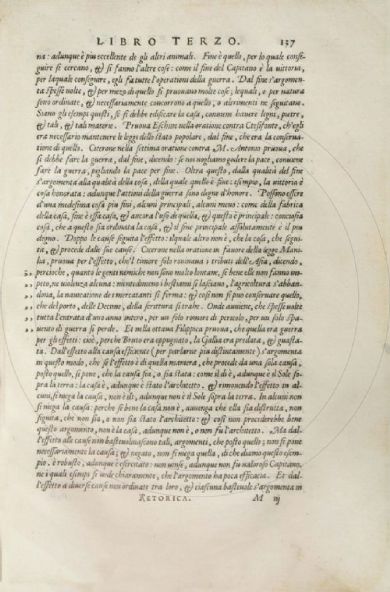 LIBRO TERZO. 137
na: adunque è più eccellente de gli altri animali. Fine è quello, per lo quale conse-
guire si cercano, & si fanno l'altre cose: come il fine del Capitano è la vittoria,
per laquale conseguire, egli fa tutte l'operationi della guerra. Dal fine s'argomen-
ta spesse volte, & per mezo di quello si pruovano molte cose; lequali, e per natura
sono ordinate, & necessariamente concorrono a quello, o altrimenti ne seguitano.
Siano gli esempi questi, se si debbe edificare la casa, conviene havere legni, pietre,
& tali, & tali materie. Pruova Eschine nella oratione contra Ctesifonte, ch'egli
era necessario mantenere le leggi dello stato popolare, dal fine, che era la conserva-
tione di quello. Cicerone nella settima oratione contra M. Antonio pruova, che
si debbe fare la guerra, dal fine, dicendo: se noi vogliamo godere la pace, conviene
fare la guerra, pigliando la pace per fine. Oltra questo, dalla qualità del fine
s'argomenta alla qualità della cosa, della quale quello è fine: esempio, la vittoria è
cosa honorata: adunque l'attioni della guerra sono degne d'honore. Possono essere
d'una medesima cosa più fini, alcuni principali, alcuni meno: come della fabrica
della casa, fine è essa casa, & ancora l'uso di quella, & questo è principale: conciosia
cosa, che a questo sia ordinata la casa, & il fine principale assolutamente è il più
degno. Doppo le cause seguita l'effetto: ilquale altro non è, che la cosa, che segui-
ta, & procede dalle sue cause. Cicerone nella oratione in favore della legge Mani-
lia, pruova per l'effetto, che'l timore solo rovinava i tributi dell'Asia, dicendo,
percioche, quanto le genti nemiche non sono molto lontane, se bene elle non fanno im-
peto, ne violenza alcuna: nientedimeno i bestiami si lasciano, l'agricoltura s'abban-
dona, la navicatione de i mercatanti si ferma: & così non si può conservare quello,
che del porto, delle Decime, della scrittura si trahe. Onde aviene, che spesse volte
tutta l'entrata d'uno anno intero, per un solo romore di pericolo, per un solo spa-
vento di guerra si perde. Et nella ottava Filippica pruova, che quella era guerra
per gli effetti: cioè, perche Bruto era oppugnato, la Gallia era predata, & guasta-
ta. Dall'effetto alla causa efficiente (per parlarne più distintamente) s'argomenta
in questo modo, che se l'effetto è di quella maniera, che procede da una sola causa,
posto quello, si pone, che la causa sia, o sia stata: come il dì è, adunque è il Sole so-
pra la terra: la casa è, adunque è stato l'architetto. & rimovendo l'effetto in al-
cuni, si niega la causa, non è il dì, adunque non è il Sole sopra la terra. In alcuni non
si niega la causa: perche se bene la casa non è, avvenga che ella sia destrutta, non
seguita, che non sia, o non sia stato l'architetto: & così non procederebbe bene
questo argomento, non è la casa, adunque non è, o non fu l'architetto. Ma dal-
l'effetto alle cause non bastevoli a sono tali, argomenti, che posto quello; non si pone
necessariamente la causa; & negato, non si niega quella, di che diamo questo esem-
pio, è robusto, adunque è esercitato: non vinse, adunque non fu valoroso Capitano,
ne i quali esempi si vede chiaramente, che l'argomento ha poca efficacia. Et dal-
l'effetto a diverse cause non ordinate tra loro, & ciascuna bastevole s'argomenta in
RETORICA. M iij